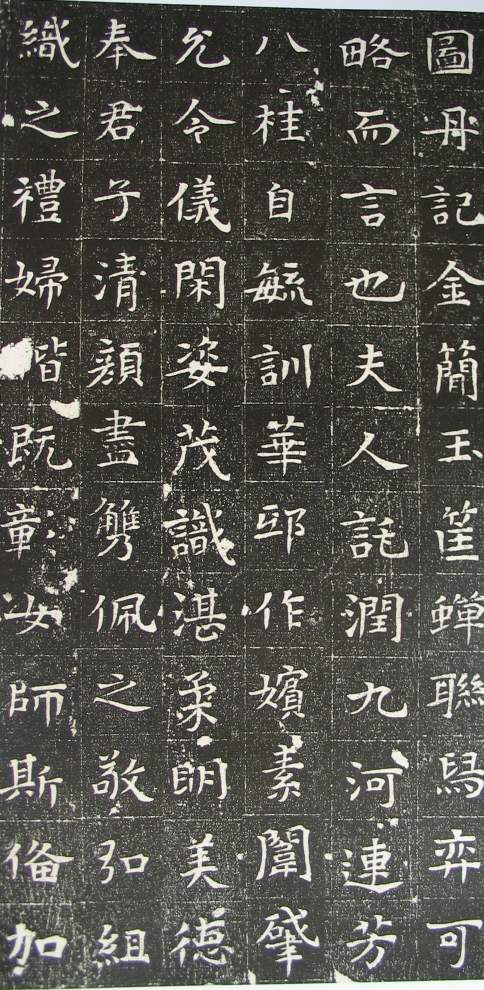 圖丹記金簡玉筐蟬聯舃弈可
略而言也夫人託潤九河連芳
八桂自毓訓華邸作嬪素闈肇
允令儀閑姿茂識湛柔明美德
奉君子清顏盡觽佩之敬弘組
織之禮婦既彰女師斯俻加